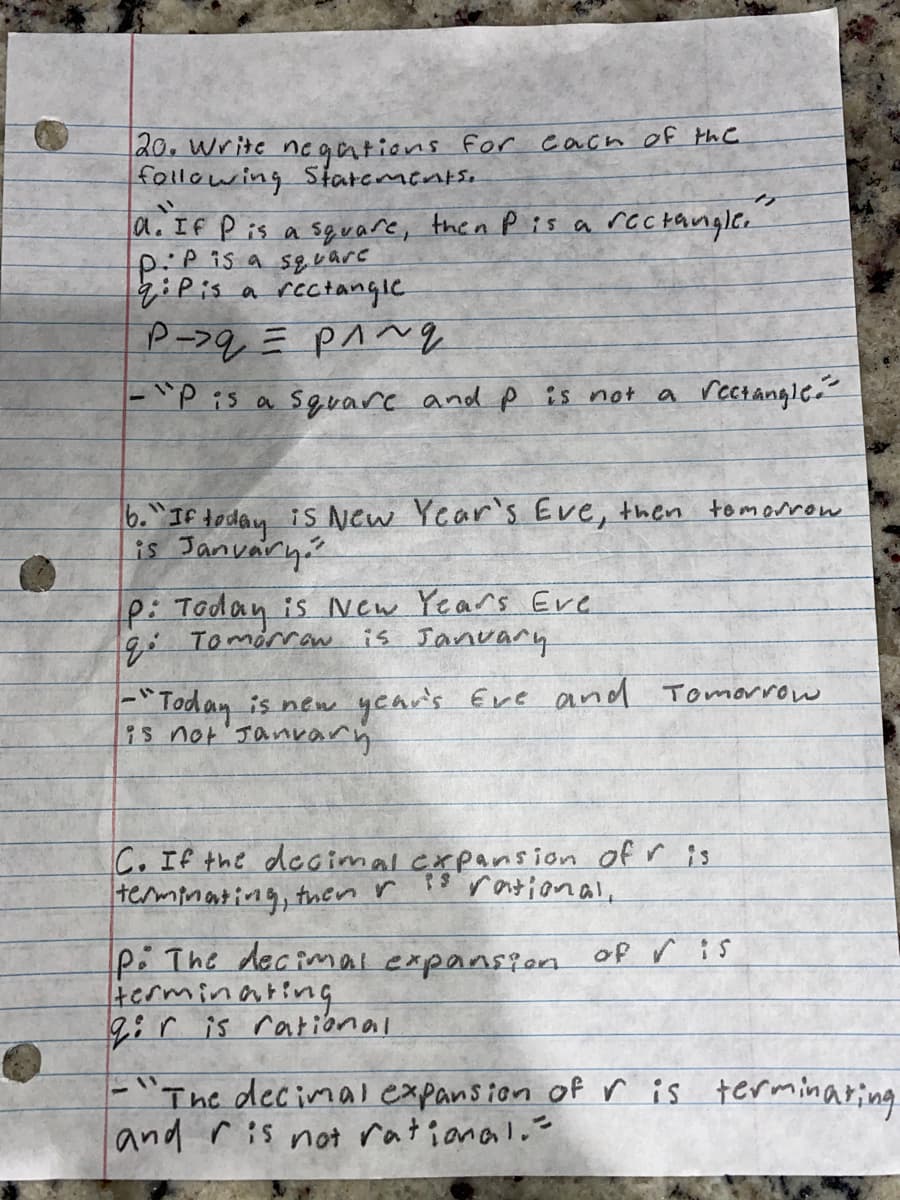 20. Write negations for each of the
following Statements.
a. "If P is a square, then P is a rectangle."
p: P is a square
q: P is a rectangle
P->q ≡ p∧~q
- "P is a square and p is not a rectangle."
b. "If today is New Year's Eve, then tomorrow
is January."
p: Today is New Years Eve
q: Tomorrow is January
- "Today is new year's Eve and Tomorrow
is not January
C. If the decimal expansion of r is
terminating, then r is rational,
p: The decimal expansion of r is
terminating
q: r is rational
- "The decimal expansion of r is terminating
and r is not rational."